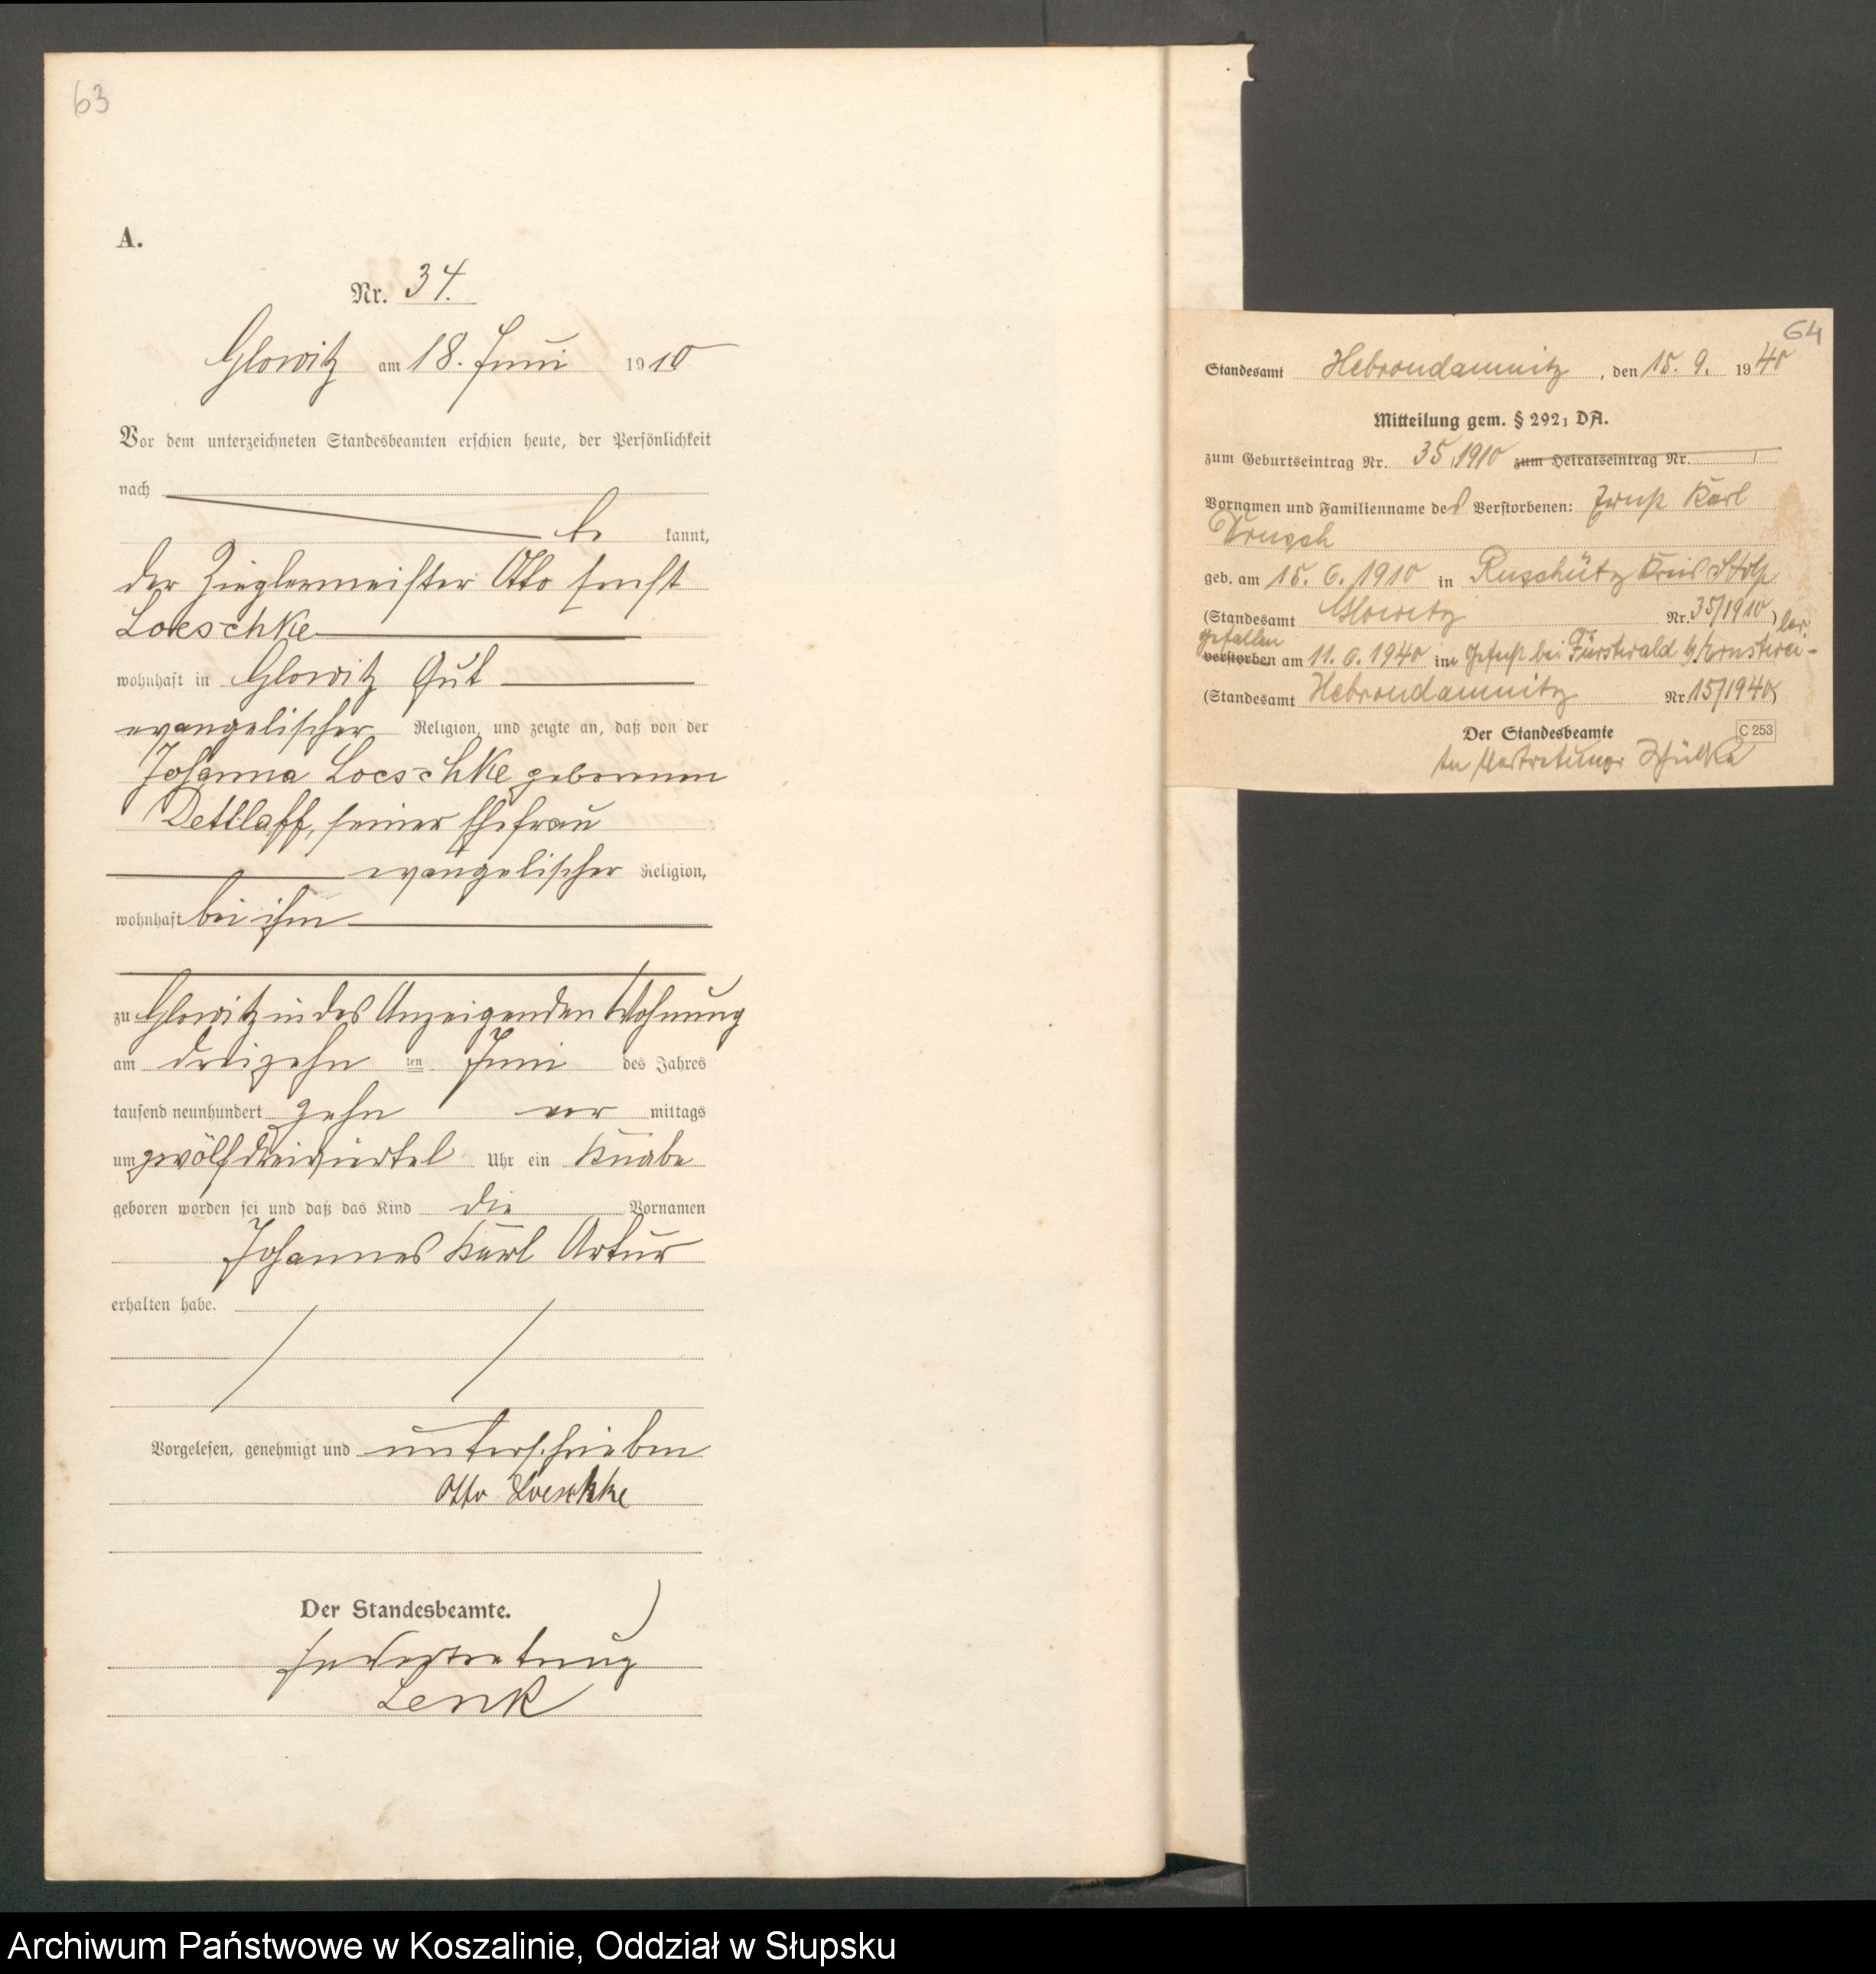 63
A.
Nr. 34.
Glowitz am 18. Juni 1910
Vor dem unterzeichneten Standesbeamten erschien heute, der Persönlichkeit
nach
be kannt,
der Zieglermeister Otto Ernst
Loeschke
wohnhaft in Glowitz Gut
evangelischer Religion, und zeigte an, daß von der
Johanna Loeschke geborenen
Dettlaff, seiner Ehefrau
evangelischer Religion,
wohnhaft bei ihm
zu Glowitz in des Anzeigenden Wohnung
am dreizehn ten Juni des Jahres
tausend neunhundert zehn vor mittags
um zwölfdreiviertel Uhr ein Knabe
geboren worden sei und daß das Kind die Vornamen
Johannes Karl Artur
erhalten habe.
Vorgelesen, genehmigt und unterschrieben
Otto Loeschke
Der Standesbeamte.
In Vertretung
Lenk
64
Standesamt Hebrondamnitz, den 15. 9. 1940
Mitteilung gem. § 292, DA.
zum Geburtseintrag Nr. 35, 1910 zum Heiratseintrag Nr.
Vornamen und Familienname des Verstorbenen: Ernst Karl
geb. am 15. 6. 1910 in Ruschütz Kreis Stolp
(Standesamt Glowitz Nr. 35/1910)
gefallen
verstorben am 11. 6. 1940 im bei Fürstwald
(Standesamt Hebrondamnitz Nr. 15/1940)
Der Standesbeamte
C 253
In Vertretung:
Archiwum Państwowe w Koszalinie, Oddział w Słupsku